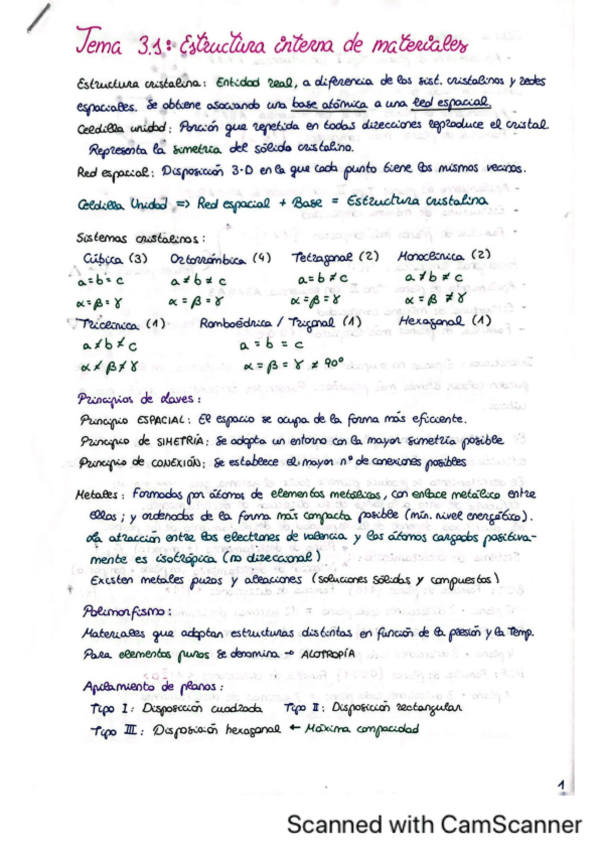 Tema 3.1: Estructura interna de materiales
Estructura cristalina: Entidad real, a diferencia de los sist. cristalinos y redes
espaciales. Se obtiene asociando una base atómica a una red espacial.
Celdilla unidad: Porción que repetida en todas direcciones reproduce el cristal.
Representa la simetría del sólido cristalino.
Red espacial: Disposición 3-D en la que cada punto tiene los mismos vecinos.
Celdilla Unidad => Red espacial + Base = Estructura cristalina
Sistemas cristalinos:
Cúbica (3) Ortorrómbica (4) Tetragonal (2) Monoclínica (2)
a = b = c a ≠ b ≠ c a = b ≠ c a ≠ b ≠ c
α = β = γ α = β = γ α = β = γ α = β ≠ γ
Triclínica (1) Romboédrica / Trigonal (1) Hexagonal (1)
a ≠ b ≠ c a = b = c
α ≠ β ≠ γ α = β = γ ≠ 90º
Principios de claves:
Principio ESPACIAL: El espacio se ocupa de la forma más eficiente.
Principio de SIMETRÍA: Se adopta un entorno con la mayor simetría posible
Principio de CONEXIÓN: Se establece el mayor nº de conexiones posibles
Metales: Formados por átomos de elementos metálicos, con enlace metálico entre
ellos; y ordenados de la forma más compacta posible (mín. nivel energético).
La atracción entre los electrones de valencia y los átomos cargados positiva-
mente es isotrópica (no direccional)
Existen metales puros y aleaciones (soluciones sólidas y compuestos)
Polimorfismo:
Materiales que adoptan estructuras distintas en función de la presión y la temp.
Para elementos puros se denomina → ALOTROPÍA
Apilamiento de planos:
Tipo I: Disposición cuadrada Tipo II: Disposición rectangular
Tipo III: Disposición hexagonal ← Máxima compacidad
1
Scanned with CamScanner